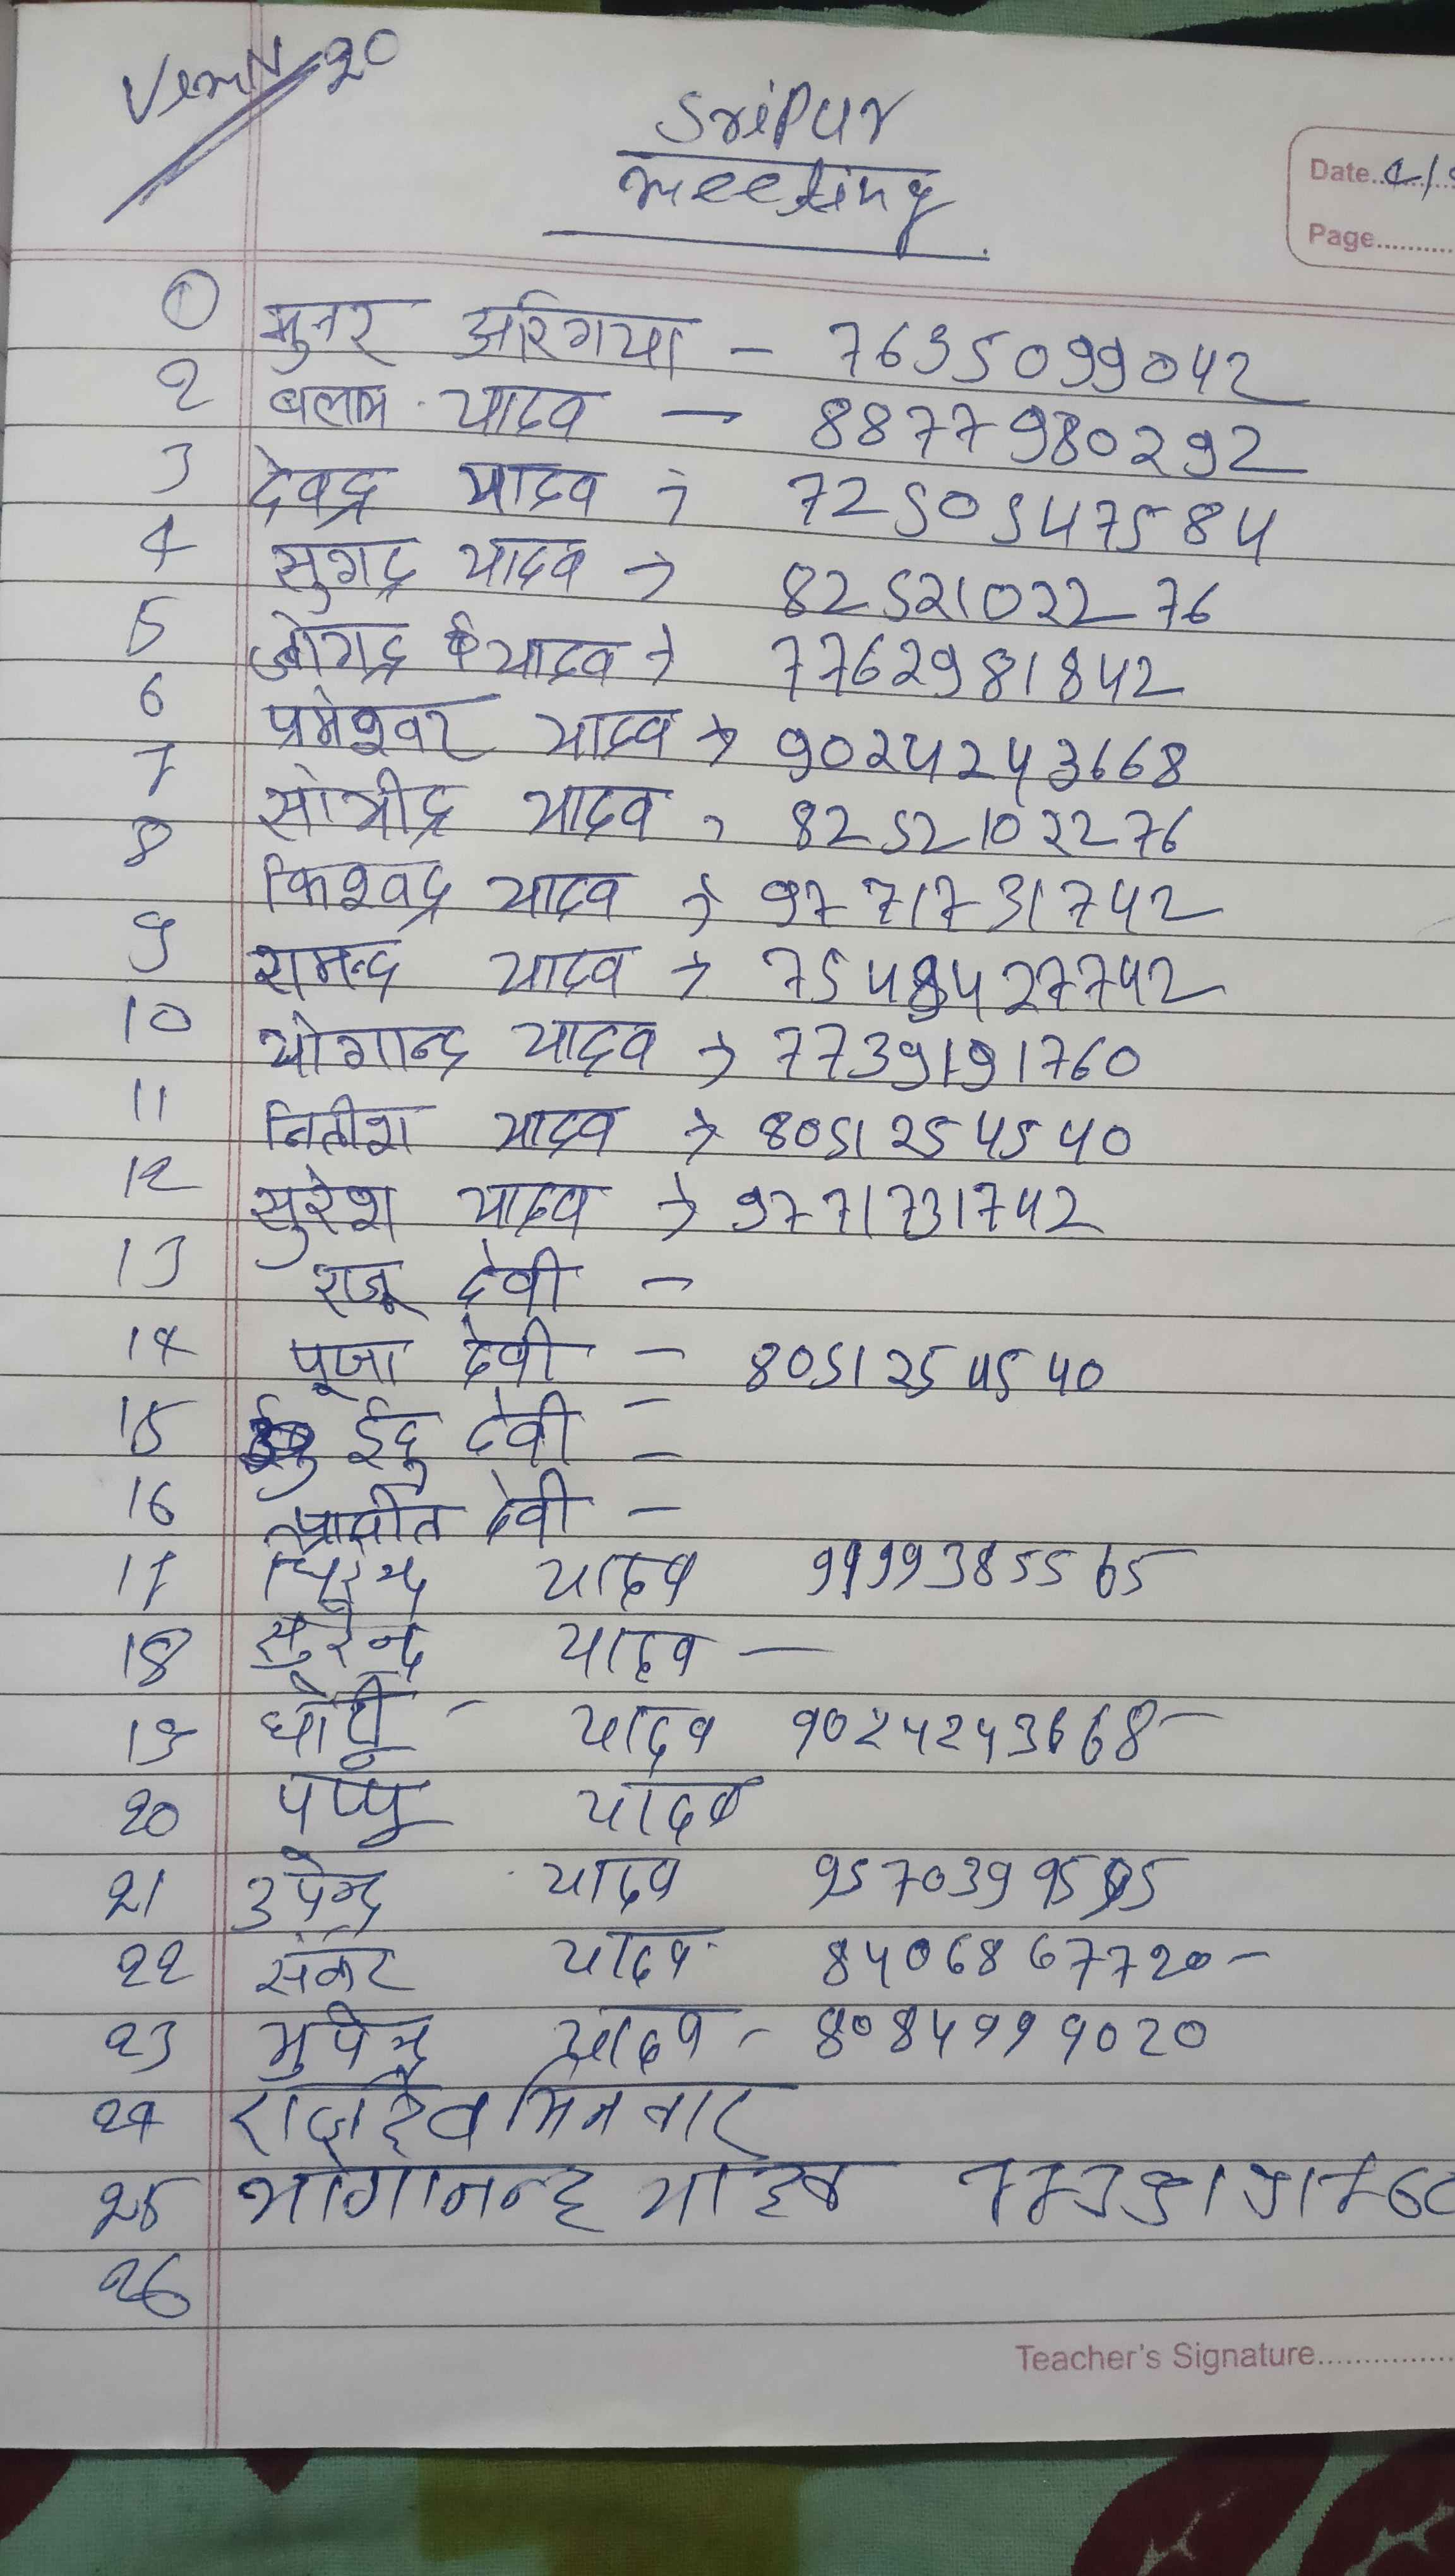 20
Sripur
Meeting
Date.. 4/
Page..........
1 मुनर अरगिया - 7635099042
2 बलाम यादव - 8877980292
3 देवद्र यादव → 7250547584
4 सुगद्र यादव → 8252102276
5 जोगद्र यादव → 7762981842
6 प्रमेश्वर यादव → 9024243668
7 सोत्रीद्र यादव → 8252102276
8 किश्वद्र यादव → 9771731742
9 रामन्द्र यादव → 
10 योगान्द्र यादव → 7739191760
11 नितीश यादव → 8051254540
12 सुरेश यादव → 9771731742
13 राजू देवी -
14 पूजा देवी - 8051254540
15 ईदु देवी =
16 देवी -
17 यादव 9199385565
18 सुरेन्द्र यादव -
19 यादव 9024243668 -
20 पप्पु यादव
21 उपेन्द्र यादव
22 संकर यादव 8406867720 -
23 भुपेन्द्र यादव - 8084999020
24 राजदेव
25 योगानन्द यादव 773919176
26
Teacher's Signature...............